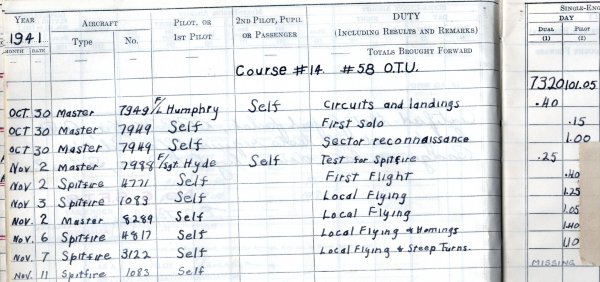 YEAR AIRCRAFT PILOT, OR 2ND PILOT, PUPIL DUTY SINGLE-ENG
1941 Type No. 1ST PILOT OR PASSENGER (INCLUDING RESULTS AND REMARKS) DAY
MONTH DATE DUAL PILOT
(1) (2)
TOTALS BROUGHT FORWARD
Course #14. #58 O.T.U. 7320 101.05
OCT. 30 Master 7949 F/L Humphry Self Circuits and landings .40
OCT 30 Master 7949 Self First Solo .15
OCT 30 Master 7949 Self Sector reconnaissance 1.00
Nov. 2 Master 7988 F/Sgt. Hyde Self Test for Spitfire .25
Nov 2 Spitfire 4771 Self First Flight .40
Nov 3 Spitfire 1083 Self Local Flying 1.25
Nov. 2 Master 8289 Self Local Flying 1.05
Nov. 6 Spitfire 4817 Self Local Flying & Homings 1.40
Nov. 7 Spitfire 3122 Self Local Flying & Steep Turns. 1.10
Nov. 11 Spitfire 1083 Self MISSING